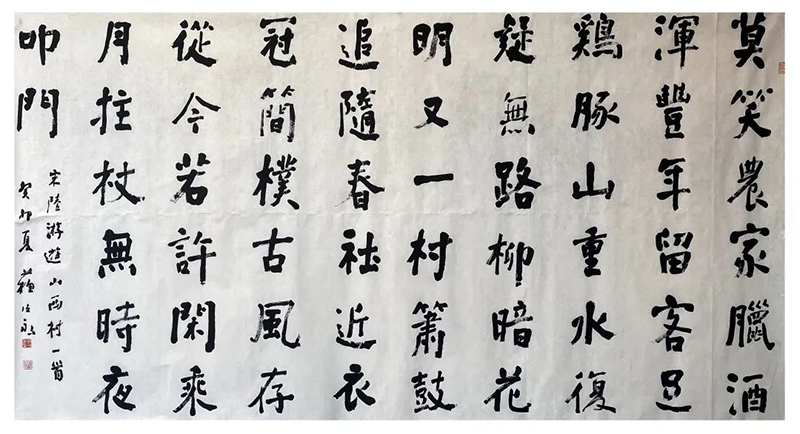 莫笑農家臘酒
渾豐年留客足
鷄豚山重水復
疑無路柳暗花
明又一村簫鼓
追隨春社近衣
冠簡樸古風存
從今若許閑乘
月拄杖無時夜
叩門
宋陸游遊山西村一首
癸卯夏蘇